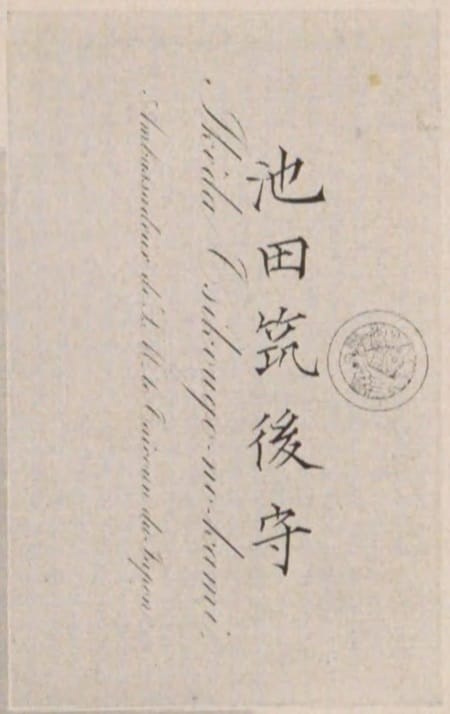 池田筑後守
Ikeda Tsikougo-no-kami.
Ambassadeur de S. M. le Taïcoun du Japon